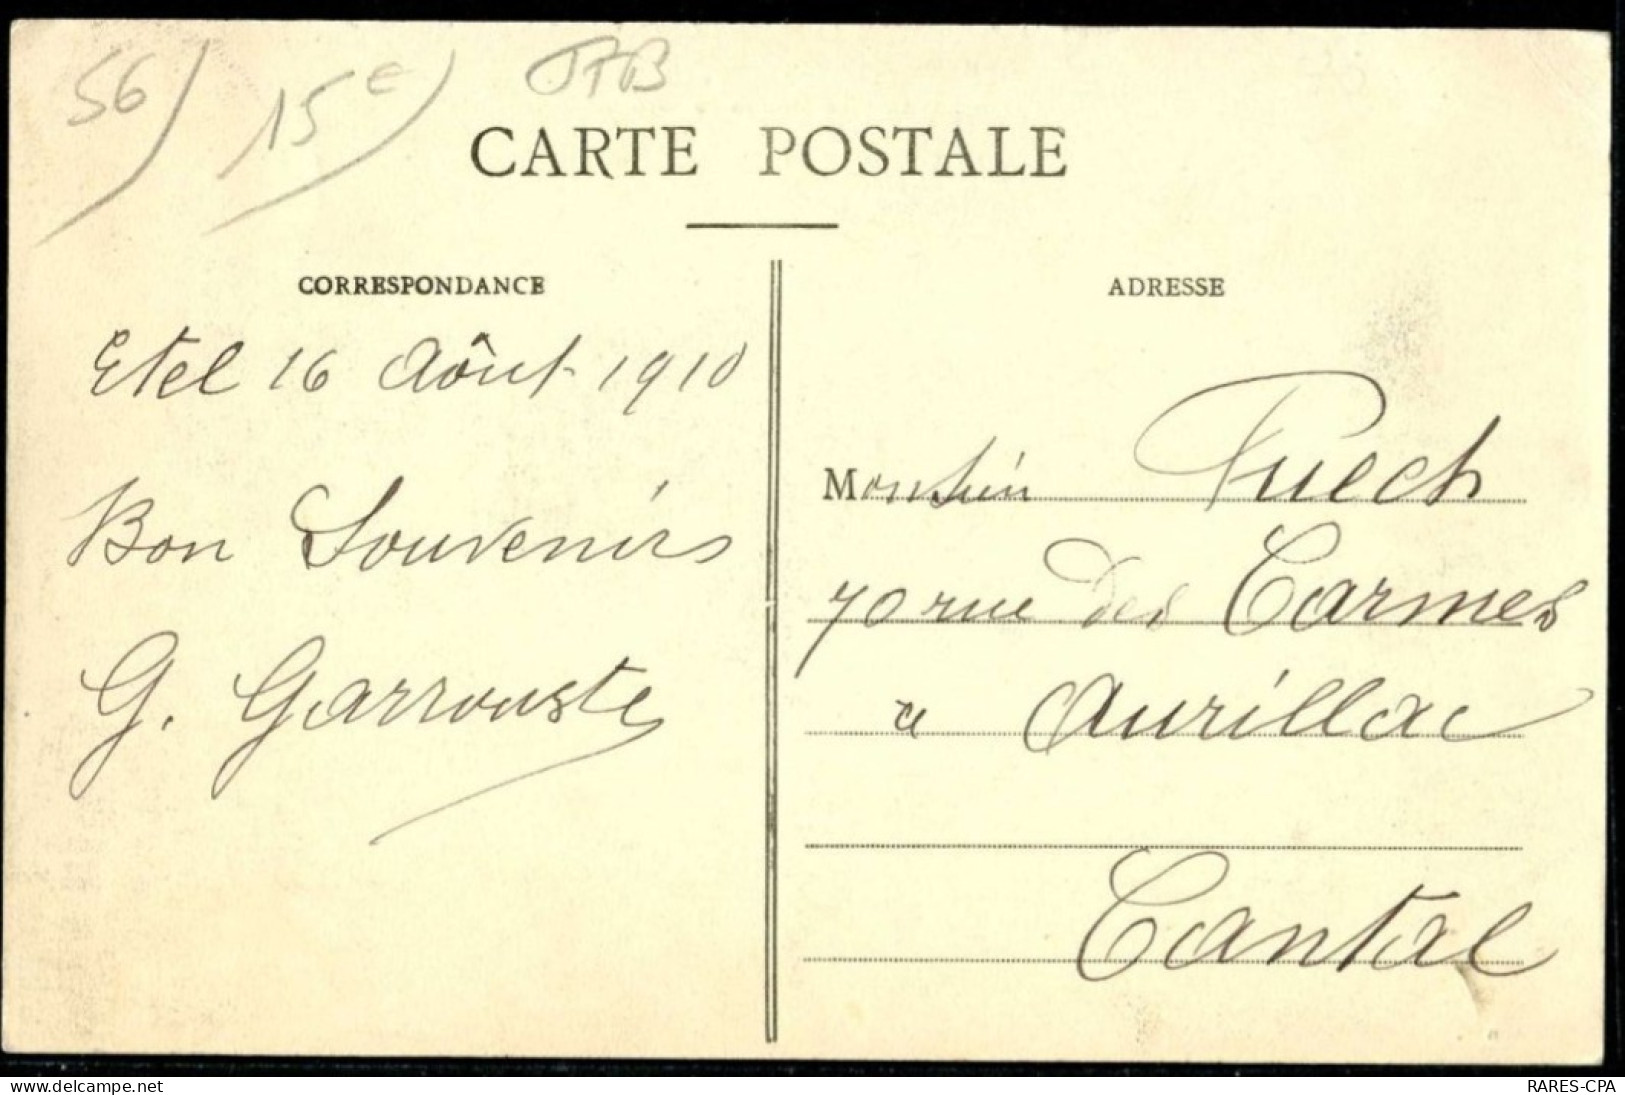 56
15e
CARTE POSTALE
CORRESPONDANCE
ADRESSE
Etel 16 Août 1910
Bon Souvenirs
G. Garrouste
Monsieur Puech
70 rue des Carmes
a Aurillac
Cantal
www.delcampe.net
RARES-CPA